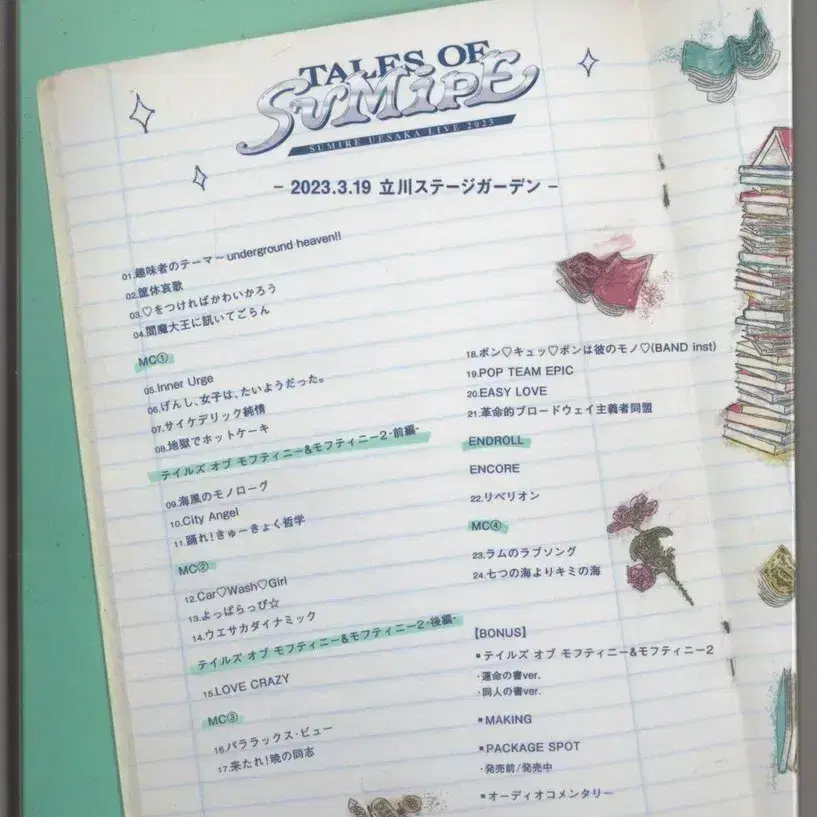 TALES OF
SUMiPE
SUMIRE UESAKA LIVE 2023
– 2023.3.19 立川ステージガーデン –
01.趣味者のテーマ～underground heaven!!
02.筐体哀歌
03.♡をつければかわいかろう
04.閻魔大王に訊いてごらん
MC①
05.Inner Urge
06.げんし、女子は、たいようだった。
07.サイケデリック純情
08.地獄でホットケーキ
テイルズ オブ モフティニー&モフティニー2-前編-
09.海風のモノローグ
10.City Angel
11.踊れ!きゅーきょく哲学
MC②
12.Car♡Wash♡Girl
13.よっぱらっぴ☆
14.ウエサカダイナミック
テイルズ オブ モフティニー&モフティニー2-後編-
15.LOVE CRAZY
MC③
16.パララックス・ビュー
17.来たれ!暁の同志
18.ボン♡キュッ♡ボンは彼のモノ♡(BAND inst)
19.POP TEAM EPIC
20.EASY LOVE
21.革命的ブロードウェイ主義者同盟
ENDROLL
ENCORE
22.リベリオン
MC④
23.ラムのラブソング
24.七つの海よりキミの海
【BONUS】
▪テイルズ オブ モフティニー&モフティニー2
・運命の書ver.
・同人の書ver.
▪MAKING
▪PACKAGE SPOT
・発売前/発売中
▪オーディオコメンタリー